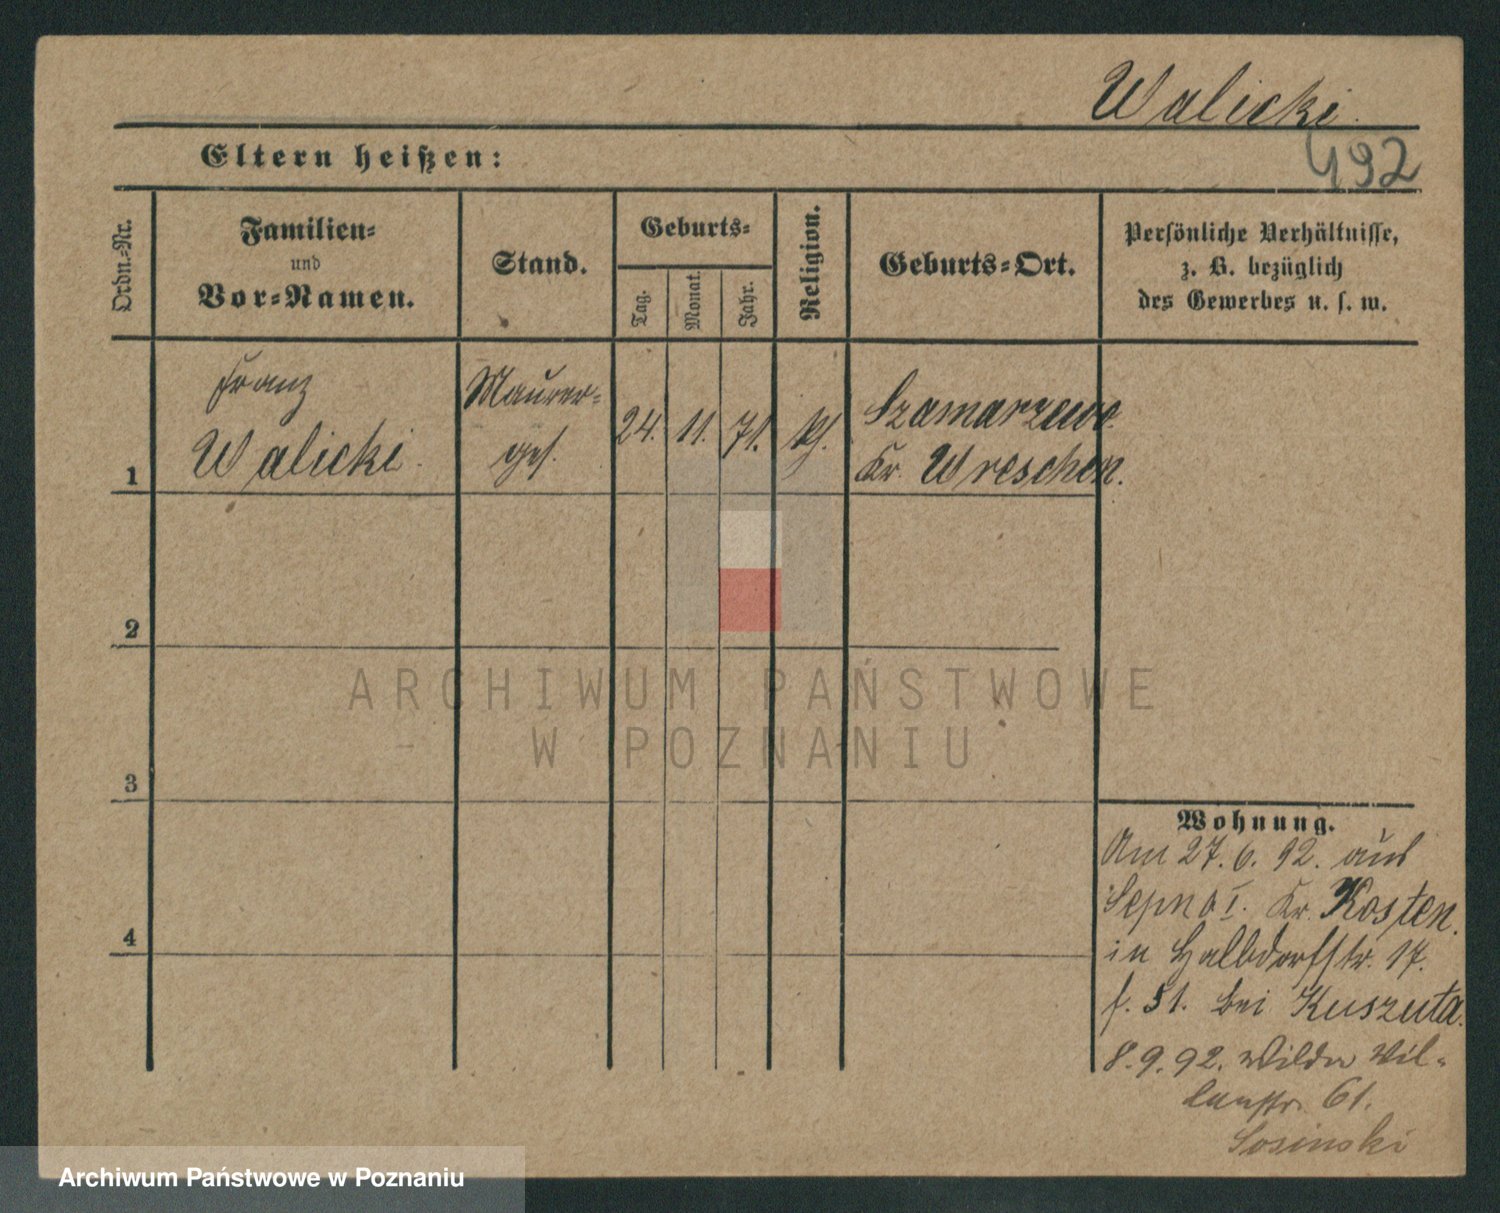 Walicki.
492
Eltern heißen:
Ordn.-Nr.
Familien-
und
Vor-Namen.
Stand.
Geburts-
Tag.
Monat.
Jahr.
Religion.
Geburts-Ort.
Persönliche Verhältnisse,
z. B. bezüglich
des Gewerbes u. s. w.
1
Franz
Walicki.
Maurer-
ges.
24. 11. 71.
Szamarzewo
Kr. Wreschen.
2
3
4
ARCHIWUM PAŃSTWOWE
W POZNANIU
Wohnung.
Am 27.6.92. aus
Sepno I. Kr. Kosten.
in Halbdorfstr. 17.
f. 51. bei Kuszuta.
8.9.92. Wilda
61.
Sosinski
Archiwum Państwowe w Poznaniu